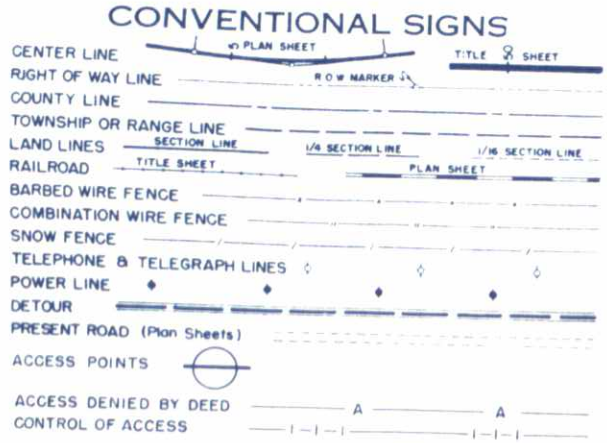 CONVENTIONAL SIGNS
CENTER LINE PLAN SHEET TITLE & SHEET
RIGHT OF WAY LINE R O W MARKER
COUNTY LINE
TOWNSHIP OR RANGE LINE
LAND LINES SECTION LINE 1/4 SECTION LINE 1/16 SECTION LINE
RAILROAD TITLE SHEET PLAN SHEET
BARBED WIRE FENCE
COMBINATION WIRE FENCE
SNOW FENCE
TELEPHONE & TELEGRAPH LINES
POWER LINE
DETOUR
PRESENT ROAD (Plan Sheets)
ACCESS POINTS
ACCESS DENIED BY DEED A A
CONTROL OF ACCESS